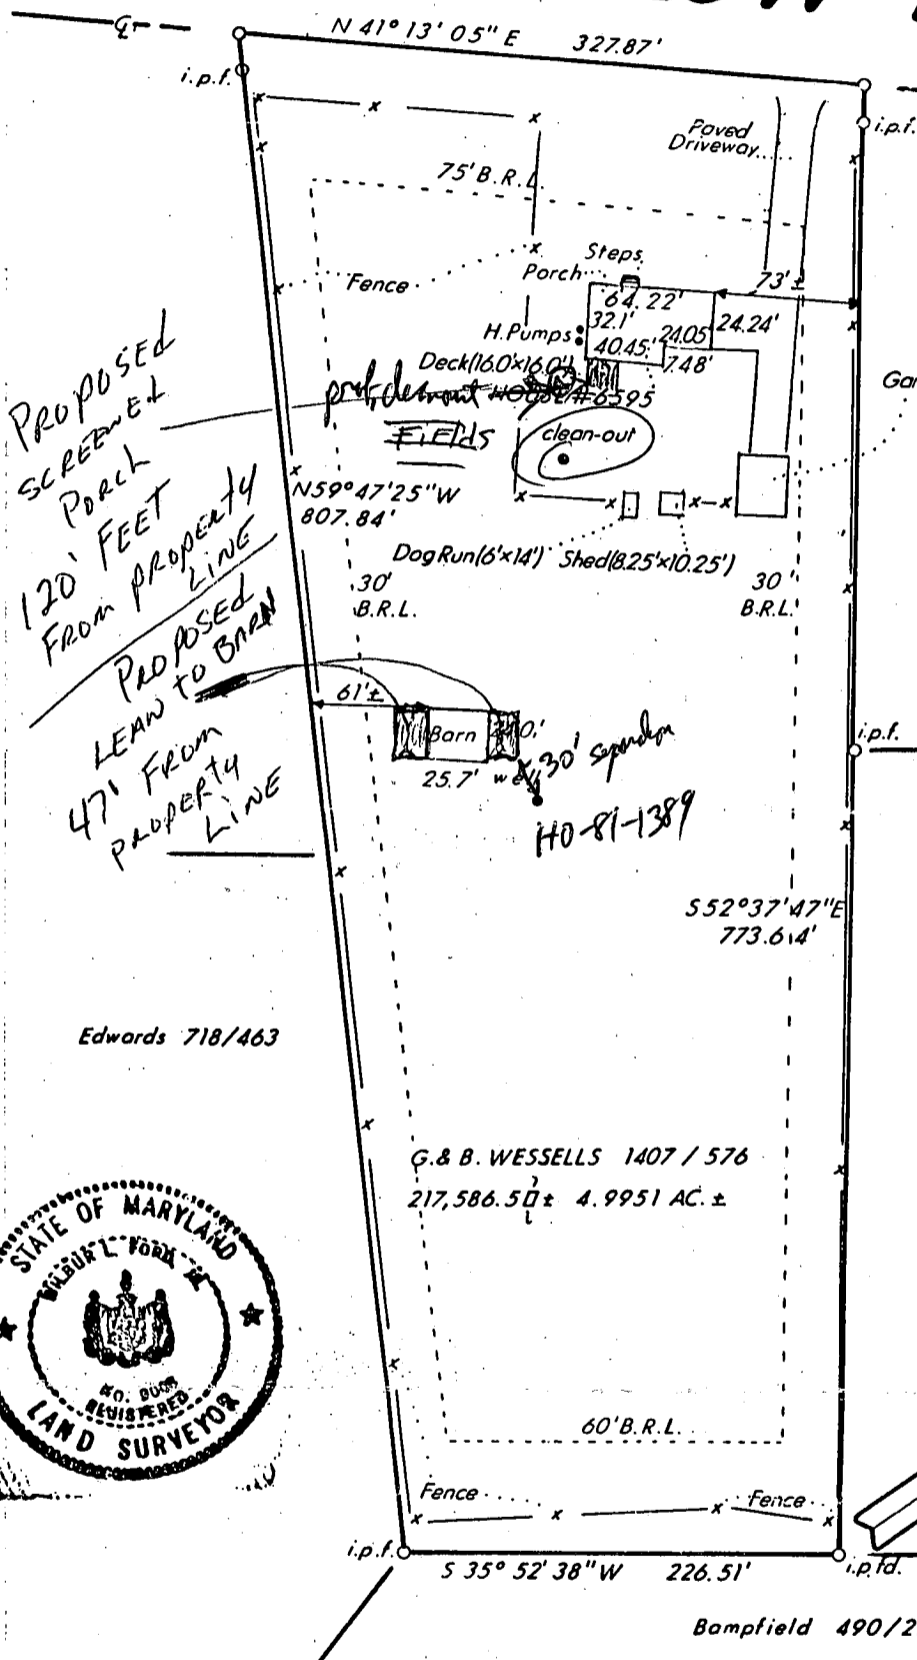 N 41° 13' 05" E 327.87'
i.p.f.
i.p.f.
Paved
Driveway
75' B.R.L.
Steps
Porch
Fence
73'±
64.22'
32.1'
24.05'
24.24'
H.Pumps
40.45'
7.48'
Deck(16.0'x16.0')
HOUSE # 6595
FIELDS
clean-out
Gar
PROPOSED
SCREENED
PORCH
120' FEET
FROM PROPERTY
LINE
N59°47'25"W
807.84'
Dog Run(6'x14')
Shed(8.25'x10.25')
30'
B.R.L.
30'
B.R.L.
PROPOSED
LEAN TO BARN
47' FROM
PROPERTY
LINE
61'±
Barn
25.7'
well
30'
HO-81-1389
i.p.f.
S52°37'47"E
773.64'
Edwards 718/463
G.& B. WESSELLS 1407 / 576
217,586.5 ± 4.9951 AC. ±
STATE OF MARYLAND
WILBUR L. FORD,
NO.
REGISTERED
LAND SURVEYOR
60' B.R.L.
Fence
Fence
i.p.f.
S 35° 52' 38" W 226.51'
i.p.fd.
Bampfield 490/2